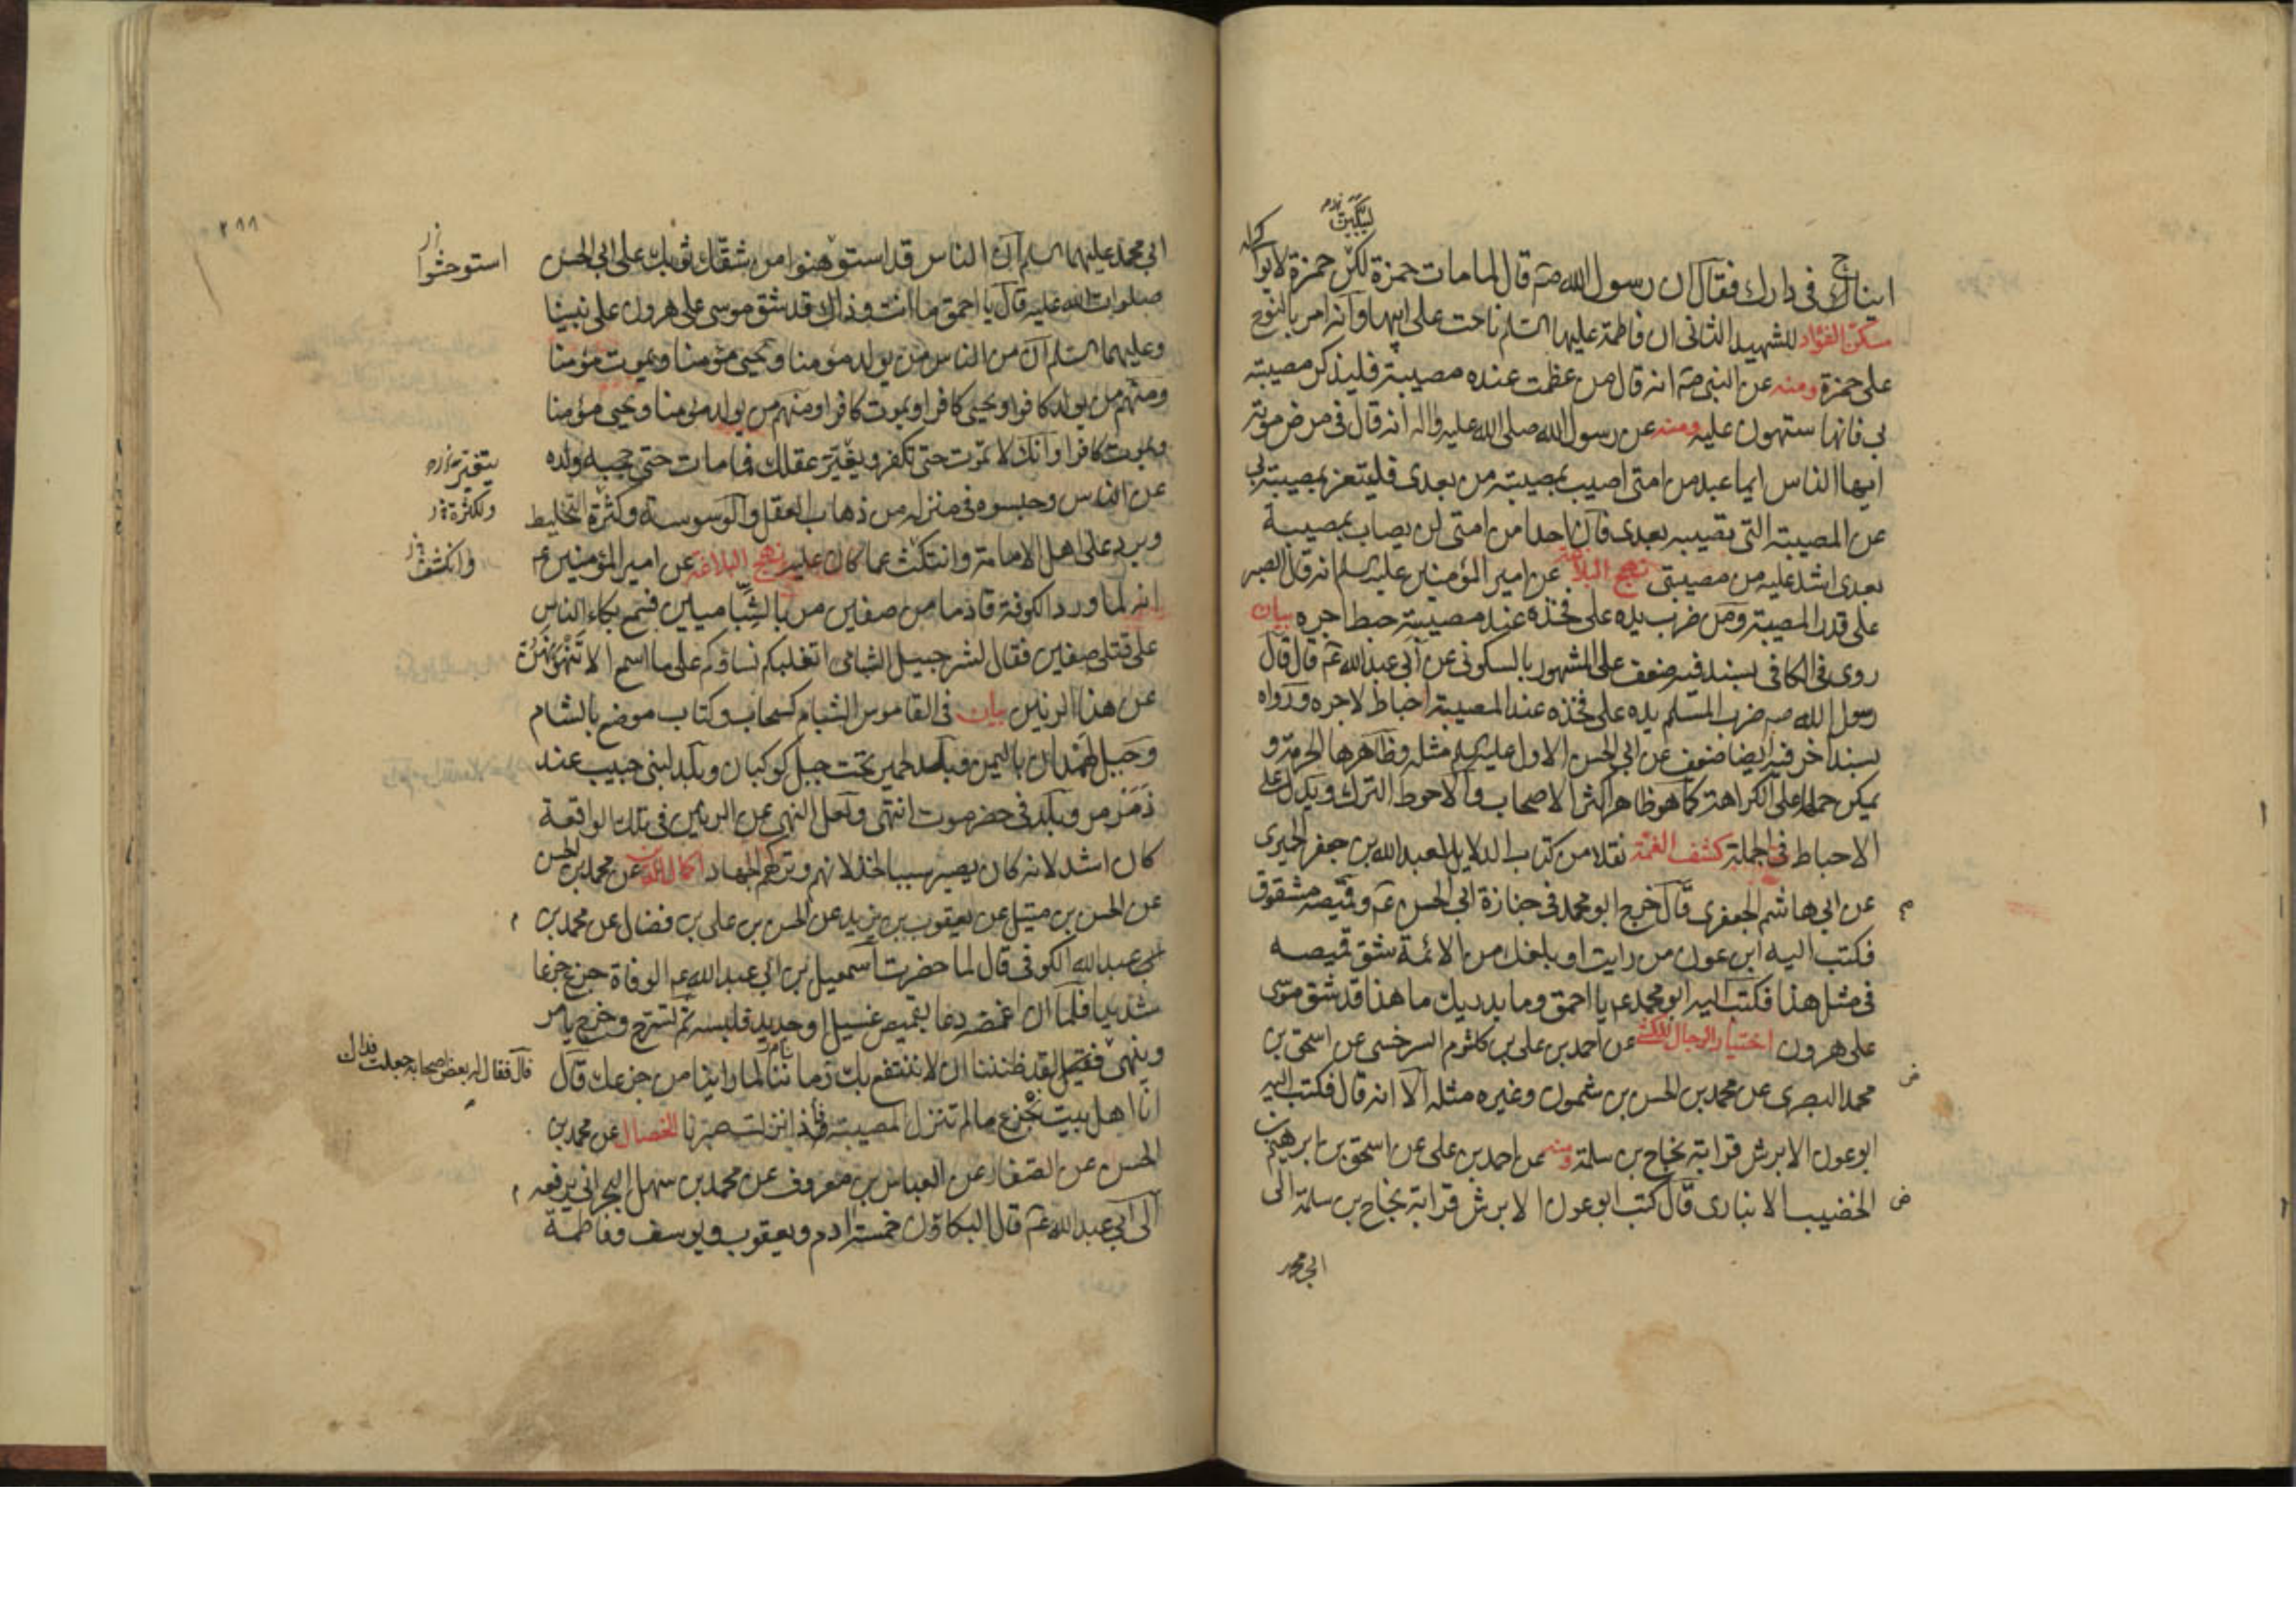 ايناح في دارك فقال ان رسول الله صم قال لما مات حمزة لكن حمزة لا بواكي له
مسكن الفؤاد للشهيد الثاني ان فاطمة عليها السلم ناحت على ابيها وانه امر بالنوح
على حمزة ومنه عن النبي صم انه قال من عظمت عنده مصيبة فليذكر مصيبته
بي فانها ستهون عليه ومنه عن رسول الله صلى الله عليه واله انه قال في مرض موته
ايها الناس ايما عبد من امتي اصيب بمصيبة من بعدي فليتعز بمصيبته بي
عن المصيبة التي تصيبه بعدي فان احدا من امتي لن يصاب بمصيبة
بعدي اشد عليه من مصيبتي نهج البلاغة عن امير المؤمنين عليه السلم انه قال الصبر
على قدر المصيبة ومن ضرب يده على فخذه عند مصيبة حبط اجره بيان
روى في الكافي بسند فيه ضعف على المشهور بالسكوني عن أبي عبد الله عم قال قال
رسول الله صم ضرب المسلم يده على فخذه عند المصيبة احباط لاجره ورواه
بسند اخر فيه ايضا ضعف عن ابي الحسن الاول عليه السلم مثله وظاهرها الحرمة و
يمكن حملها على الكراهة كما هو ظاهر اكثر الاصحاب والاحوط الترك ويدل على
الاحباط في الجملة كشف الغمة نقلا من كتاب الدلايل لعبد الله بن جعفر الحميري
عن ابي هاشم الجعفري قال خرج ابو محمد في جنازة ابي الحسن عم وقميصه مشقوق
فكتب اليه ابن عون من رايت او بلغك من الائمة شق قميصه
في مثل هذا فكتب اليه ابو محمد عم يا احمق وما يدريك ما هذا قد شق موسى
على هرون اختيار الرجال للكشي عن احمد بن علي بن كلثوم السرخسي عن اسحق بن
محمد البصري عن محمد بن الحسن بن شمون وغيره مثله الا انه قال فكتب اليه
ابو عون الابرش قرابة نجاح بن سلمة ومنه عن احمد بن علي عن اسحق عن ابرهيم بن
الخضيب الانباري قال كتب ابو عون الابرش قرابة نجاح بن سلمة الى
ابي محمد
ابي محمد عليهما السلم ان الناس قد استوهنوا من شقك ثوبك على ابي الحسن
استوحشوا
صلوات الله عليه قال يا احمق ما انت وذاك قد شق موسى على هرون على نبينا
وعليهما السلم ان من الناس من يولد مؤمنا ويحيى مؤمنا ويموت مؤمنا
ومنهم من يولد كافرا ويحيى كافرا ويموت كافرا ومنهم من يولد مؤمنا ويحيى مؤمنا
ويموت كافرا وانك لا تموت حتى تكفر ويغير عقلك فما مات حتى حجبه ولده
يتغير
عن الناس وحبسوه في منزله من ذهاب العقل والوسوسة وكثرة التخليط
ولكثرة
ويرد على اهل الامامة وانتكث عما كان عليه نهج البلاغة عن امير المؤمنين عم
وانكشف
انه لما ورد الكوفة قادما من صفين مر بالشباميين فسمع بكاء الناس
على قتلى صفين فقال لشرحبيل الشبامي اتغلبكم نساؤكم على ما اسمع الا تنهونهن
عن هذا الرنين بيان في القاموس الشبام كسحاب وكتاب موضع بالشام
وجبل لهمدان باليمن وبلد لحمير تحت جبل كوكبان وبلد لبني حبيب عند
ذمرمر وبلد في حضرموت انتهى ولعل النهي عن الرنين في تلك الواقعة
كان اشد لانه كان يصير سببا لخذلانهم وتركهم الجهاد اكمال الدين عن محمد بن الحسن
عن الحسن بن متيل عن يعقوب بن يزيد عن الحسن بن علي بن فضال عن محمد بن
ابي عبد الله الكوفي قال لما حضرت اسمعيل بن ابي عبد الله عم الوفاة جزع جزعا
شديدا فلما ان غمضه دعا بقميص غسيل او جديد فلبسه ثم تسرح وخرج يامر
وينهى فقيل لقد ظننا ان لا ننتفع بك زمانا لما راينا من جزعك قال
قال فقال له بعض اصحابه جعلت فداك
انا اهل بيت نجزع ما لم تنزل المصيبة فاذا نزلت صبرنا الخصال عن محمد بن
الحسن عن الصفار عن العباس بن معروف عن محمد بن سهل البحراني يرفعه
الى ابي عبد الله عم قال البكاؤن خمسة ادم ويعقوب ويوسف وفاطمة